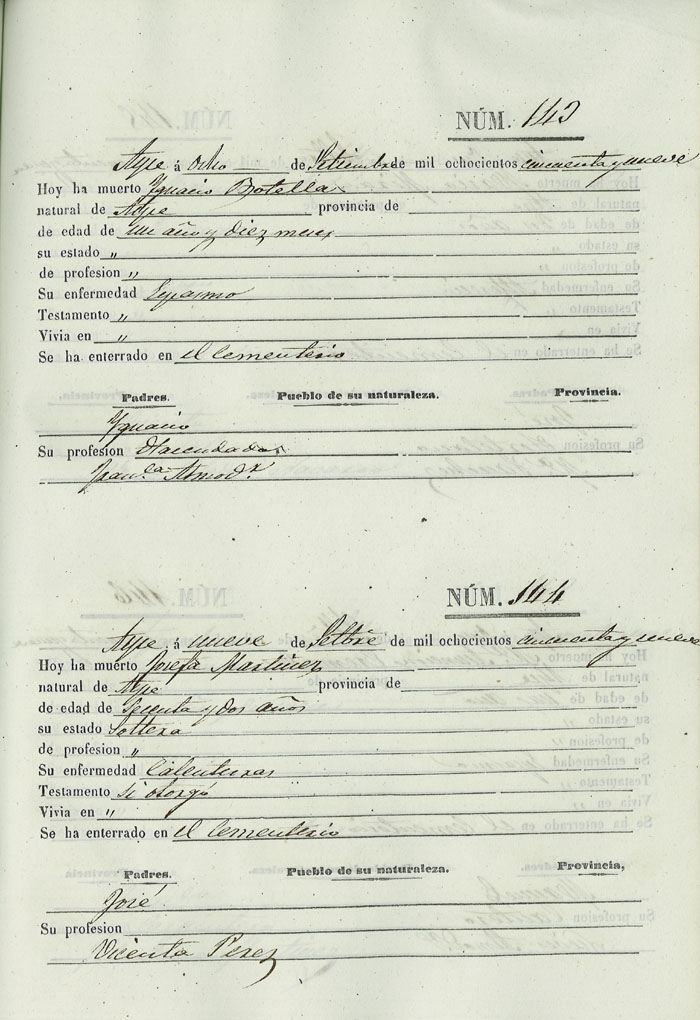 NÚM. 143
Aspe á Ocho de Setiembre de mil ochocientos cincuenta y nueve
Hoy ha muerto Ygnacio Botella
natural de Aspe provincia de
de edad de un año y diez meses
su estado „
de profesion „
Su enfermedad Espasmo
Testamento „
Vivia en „
Se ha enterrado en el Cementerio
Padres. Pueblo de su naturaleza. Provincia.
Ygnacio
Su profesion Hacendados
Fran.ca Almod.r
NÚM. 144
Aspe á nueve de Setbre de mil ochocientos cincuenta y nueve
Hoy ha muerto Josefa Martinez
natural de Aspe provincia de
de edad de Secenta y dos años
su estado Soltera
de profesion „
Su enfermedad Calenturas
Testamento Si otorgó
Vivia en „
Se ha enterrado en el Cementerio
Padres. Pueblo de su naturaleza. Provincia,
José
Su profesion
Vicenta Perez